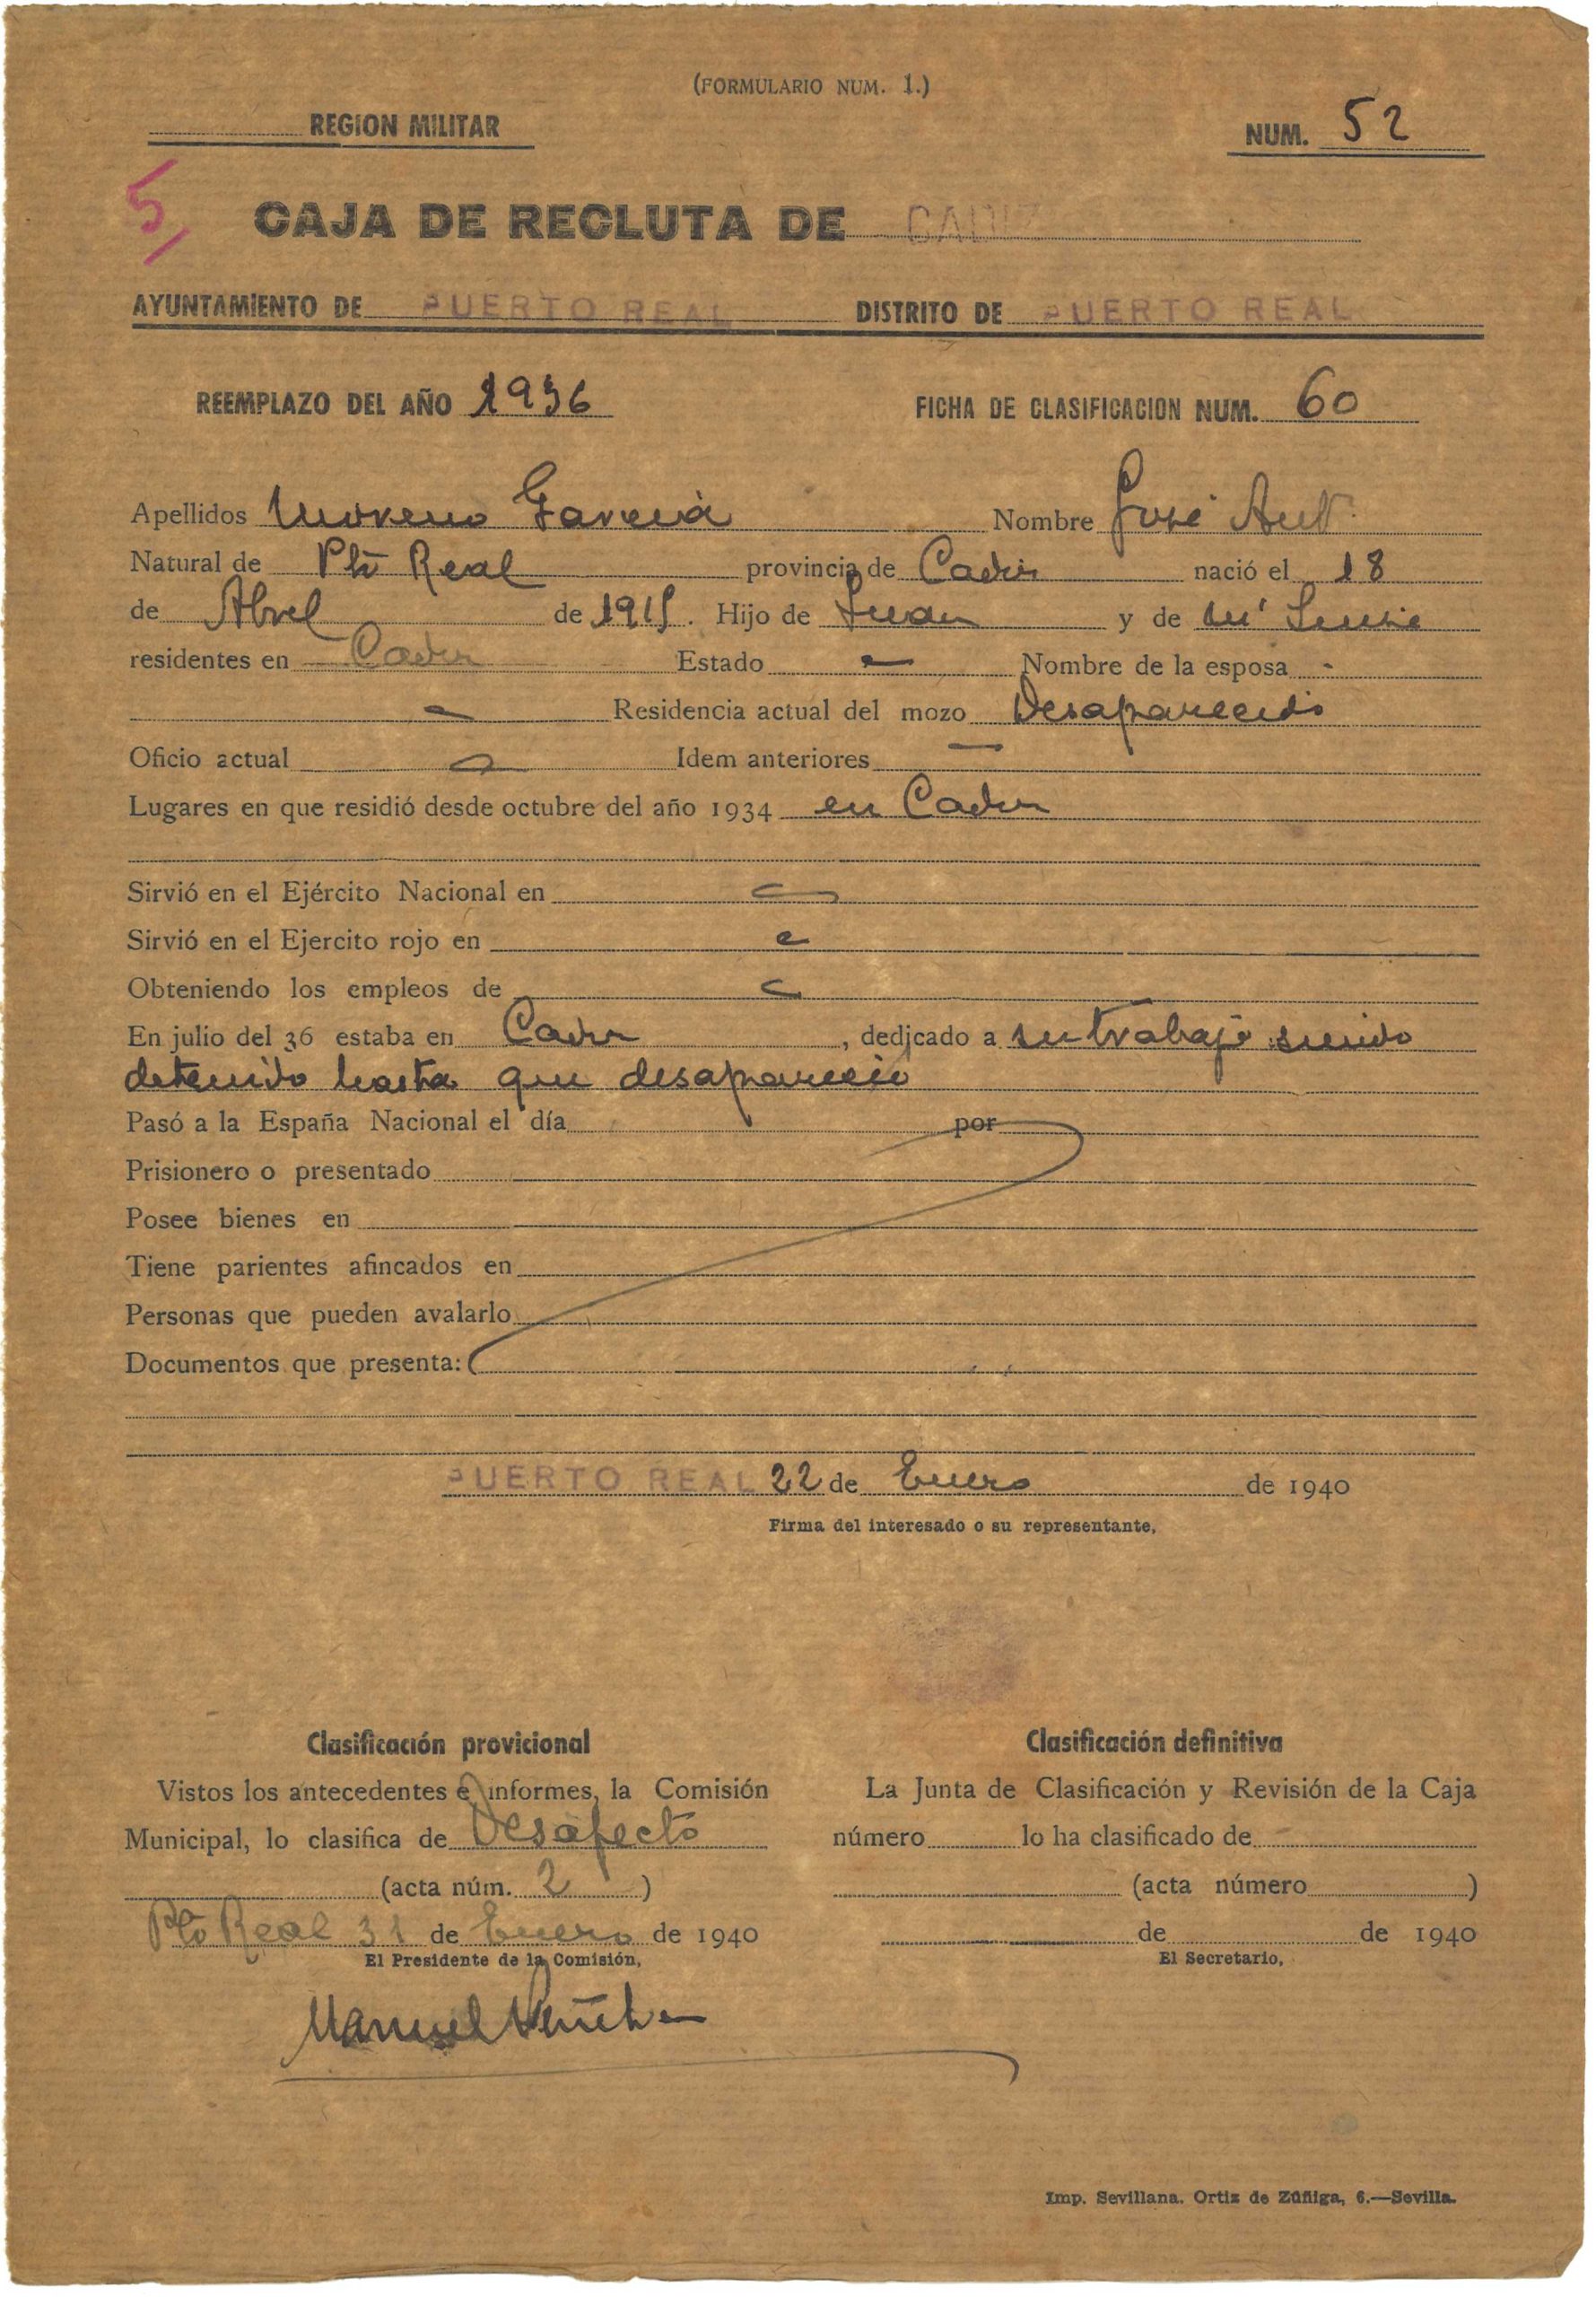 (FORMULARIO NUM. 1.)
REGION MILITAR
NUM. 52
5
CAJA DE RECLUTA DE CADIZ
AYUNTAMIENTO DE PUERTO REAL DISTRITO DE PUERTO REAL
REEMPLAZO DEL AÑO 1936 FICHA DE CLASIFICACION NUM. 60
Apellidos Moreno Garcia Nombre José Antº
Natural de Pto Real provincia de Cadiz nació el 18
de Abril de 1915. Hijo de Juan y de Mª
residentes en Cadiz Estado - Nombre de la esposa -
- Residencia actual del mozo Desaparecido
Oficio actual - Idem anteriores -
Lugares en que residió desde octubre del año 1934 en Cadiz
Sirvió en el Ejército Nacional en -
Sirvió en el Ejercito rojo en -
Obteniendo los empleos de -
En julio del 36 estaba en Cadiz, dedicado a su trabajo siendo
detenido hasta que desapareció
Pasó a la España Nacional el día por
Prisionero o presentado
Posee bienes en
Tiene parientes afincados en
Personas que pueden avalarlo
Documentos que presenta:
PUERTO REAL 22 de Enero de 1940
Firma del interesado o su representante,
Clasificación provicional
Vistos los antecedentes e informes, la Comisión
Municipal, lo clasifica de Desafecto
(acta núm. 2)
Pto Real 31 de Enero de 1940
El Presidente de la Comisión,
Manuel
Clasificación definitiva
La Junta de Clasificación y Revisión de la Caja
número lo ha clasificado de
(acta número )
de de 1940
El Secretario,
Imp. Sevillana. Ortiz de Zúñiga, 6.—Sevilla.